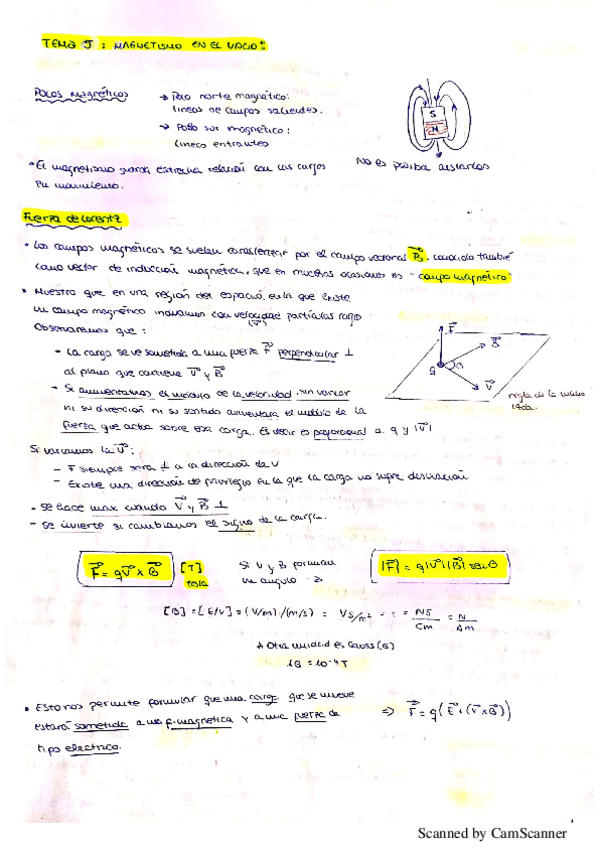 TEMA 5: MAGNETISMO EN EL VACIO:
Polos magnéticos
→ Polo norte magnético:
lineas de campos salientes.
→ Polo sur magnético:
lineas entrantes
S
N
No es posible aislarlos
• El magnetismo guarda estrecha relación con las cargas
en movimiento.
Fuerza de Lorentz
• Los campos magnéticos se suelen caracterizar por el campo vectorial B, conocido también
como vector de inducción magnética, que en muchas ocasiones es "campo magnético"
• Muestra que en una región del espacio en la que existe
un campo magnético inducimos con velocidad partículas carga
(V)
Observaremos que:
- La carga se ve sometida a una fuerza F perpendicular ⊥
al plano que contiene V y B
- Si aumentamos el módulo de la velocidad, sin variar
ni su dirección ni su sentido aumentara el módulo de la
fuerza que actúa sobre esa carga. Es decir es proporcional a q y |V|
F
B
q
V
regla de la mano
izda.
Si variamos la V:
- F siempre será ⊥ a la dirección de V
- Existe una dirección de privilegio en la que la carga no sufre desviación
- Se hace max cuando V y B ⊥
- Se invierte si cambiamos el signo de la carga.
F = qV x B [T]
tesla
Si V y B forman
un angulo →
|F| = q|V||B| sen θ
[B] = [E/v] = (V/m)/(m/s) = VS/m² = T = NS/Cm = N/Am
* Otra unidad es Gauss (G)
1G = 10⁻⁴ T
• Esto nos permite formular que una carga que se mueve
estará sometida a una f. magnetica y a una fuerza de
tipo electrico.
⇒ F = q(E + (V x B))
Scanned by CamScanner